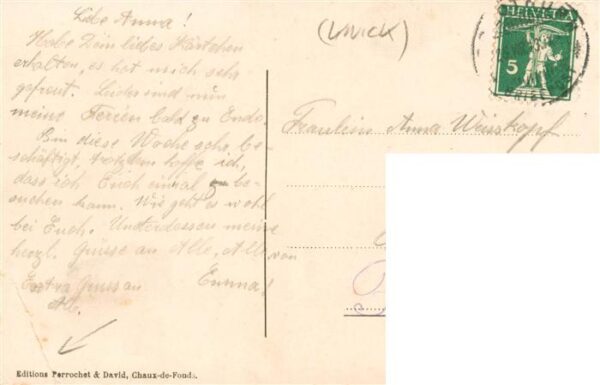 Liebe Anna!
Habe Dein liebes Kärtchen
erhalten, es hat mich sehr
gefreut. Leider sind nun
meine Ferien bald zu Ende.
Bin diese Woche sehr be-
schäftigt, trotzdem hoffe ich,
dass ich Euch einmal be-
suchen kann. Wie geht es wohl
bei Euch. Unterdessen meine
herzl. Grüsse an Alle, Alle von
Extra Gruss an Emma!
Editions Perrochet & David, Chaux-de-Fonds.
(UNICK)
HELVETIA
5
Fräulein Anna Weisskopf